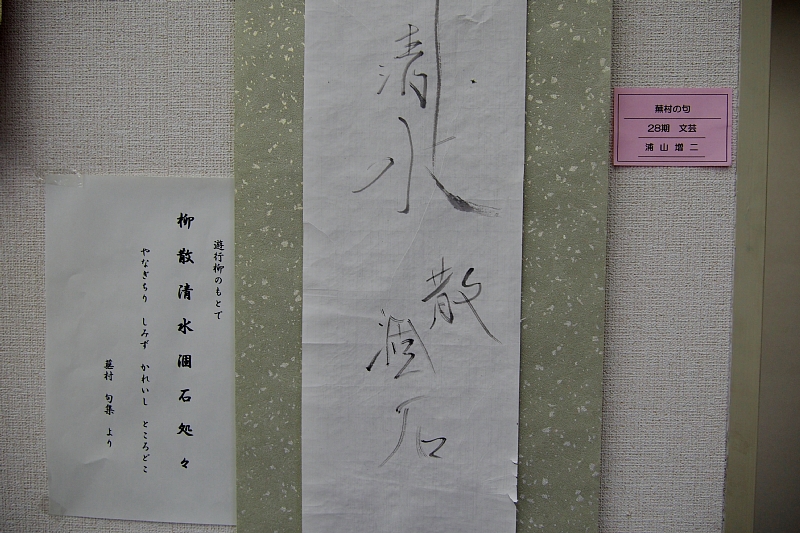 蕪村の句
28期 文芸
浦山 増二
散
清水涸石
遊行柳のもとで
柳散清水涸石処々
やなぎちり しみず かれいし ところどこ
蕪村 句集 より